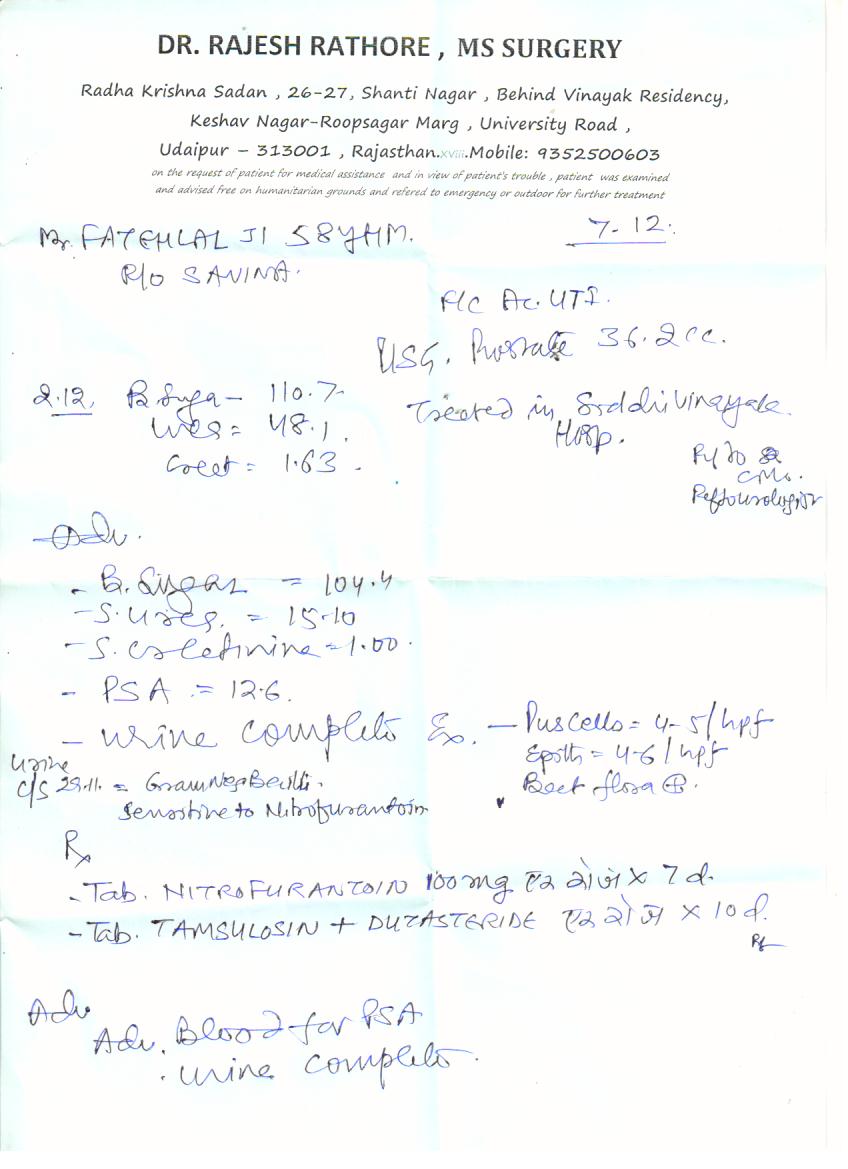 DR. RAJESH RATHORE , MS SURGERY
Radha Krishna Sadan , 26-27, Shanti Nagar , Behind Vinayak Residency,
Keshav Nagar-Roopsagar Marg , University Road ,
Udaipur – 313001 , Rajasthan.xviii.Mobile: 9352500603
on the request of patient for medical assistance and in view of patient's trouble , patient was examined
and advised free on humanitarian grounds and refered to emergency or outdoor for further treatment
7-12.
Mr. FATEHLAL JI 58YHM.
R/O SAVINA.
F/C Ac. UTI.
USG. Prostate 36.2cc.
2.12, B. Suga – 110.7
Treated in Siddhi Vinayak
Hosp.
Urea = 48.1,
Creet = 1.63.
Adv.
- B. Sugar = 104.4
- S. Urea. = 15.10
- S. Creatinine = 1.00.
- PSA = 12.6.
- Urine Complete Ex. – Pus Cells = 4-5/hpf
Epith = 4-6/hpf
Bact flora ⊕.
Urine
C/S 29.11. = Gram Neg Bacilli.
Sensitive to Nitrofurantoin
Rx
- Tab. NITROFURANTOIN 100mg एक रोज X 7 d.
- Tab. TAMSULOSIN + DUTASTERIDE एक रोज X 10 d.
Adv
Adv. Blood for PSA
. Urine Complete.